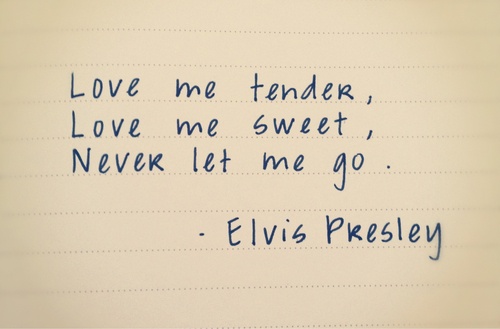 Love me tender,
Love me sweet,
Never let me go.
- Elvis Presley